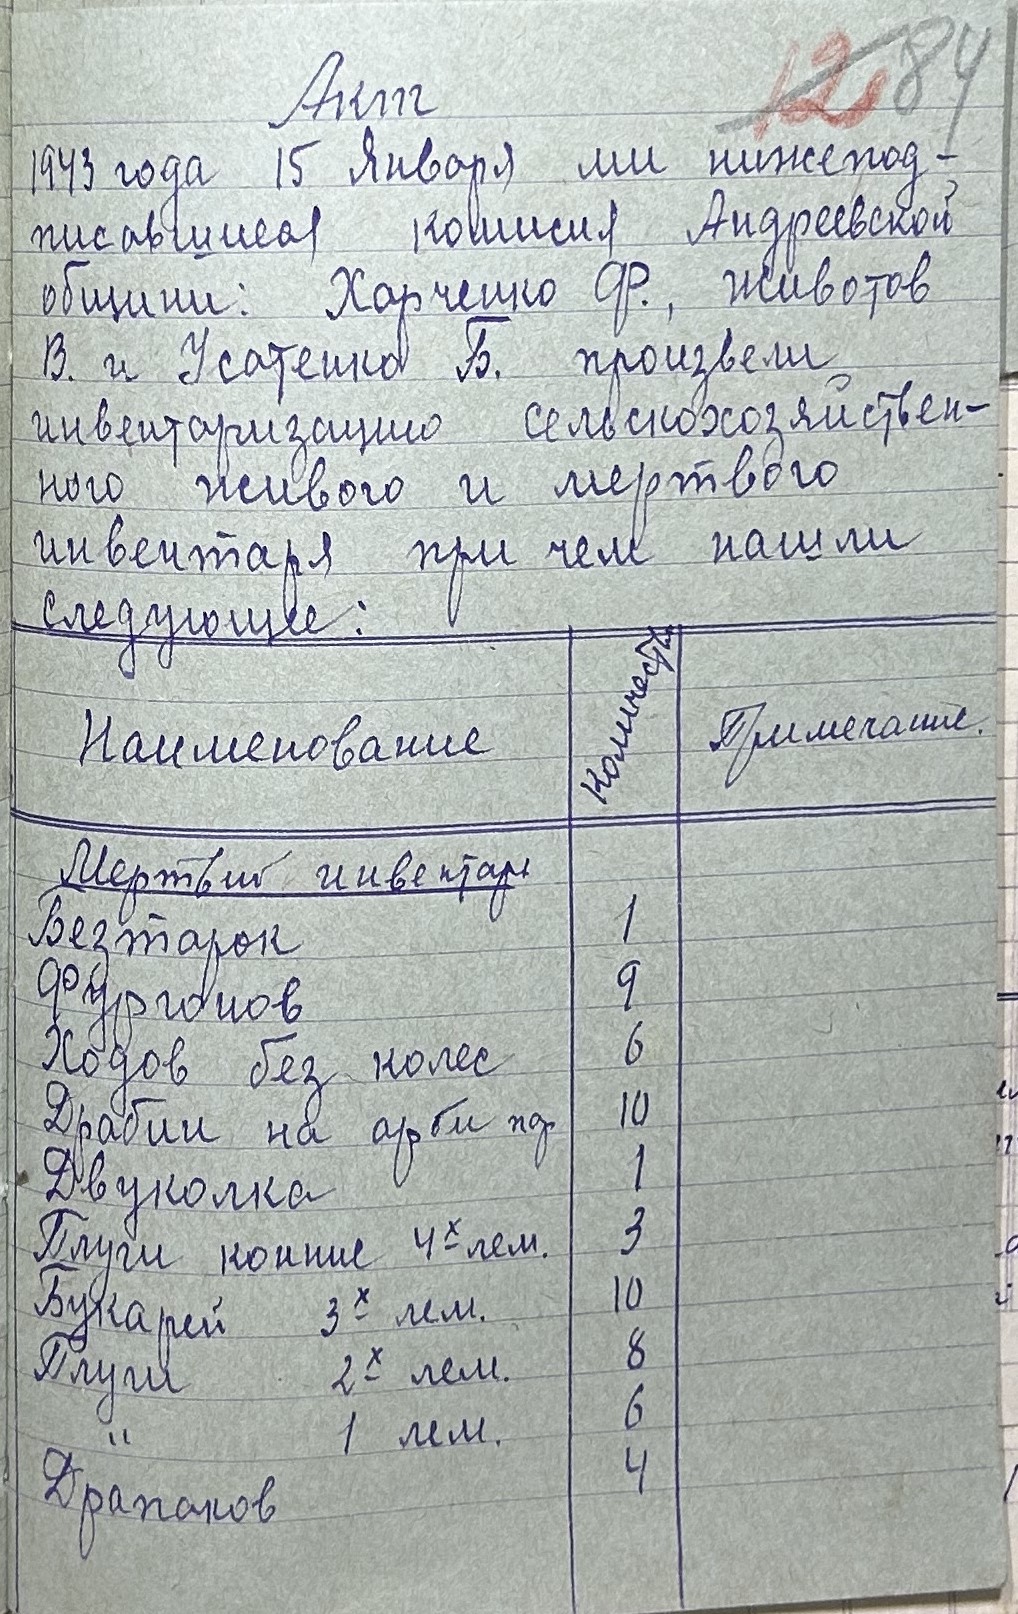 12 84
Акт
1943 года 15 Января ми нижепод-
писавшиеся комисия Андреевской
общини: Харченко Ф., Животов
В. и Усатенко Б. произвели
инвентаризацию сельскохозяйствен-
ного живого и мертвого
инвентаря при чем нашли
следующее:
Наименование Количеств Примечание.
Мертвий инвентарь
Безтарок 1
Фургонов 9
Ходов без колес 6
Драбин на арби пар 10
Двуколка 1
Плугиконние 4х лем. 3
Букарей 3х лем. 10
Плуги 2х лем. 8
" 1 лем. 6
Драпаков 4